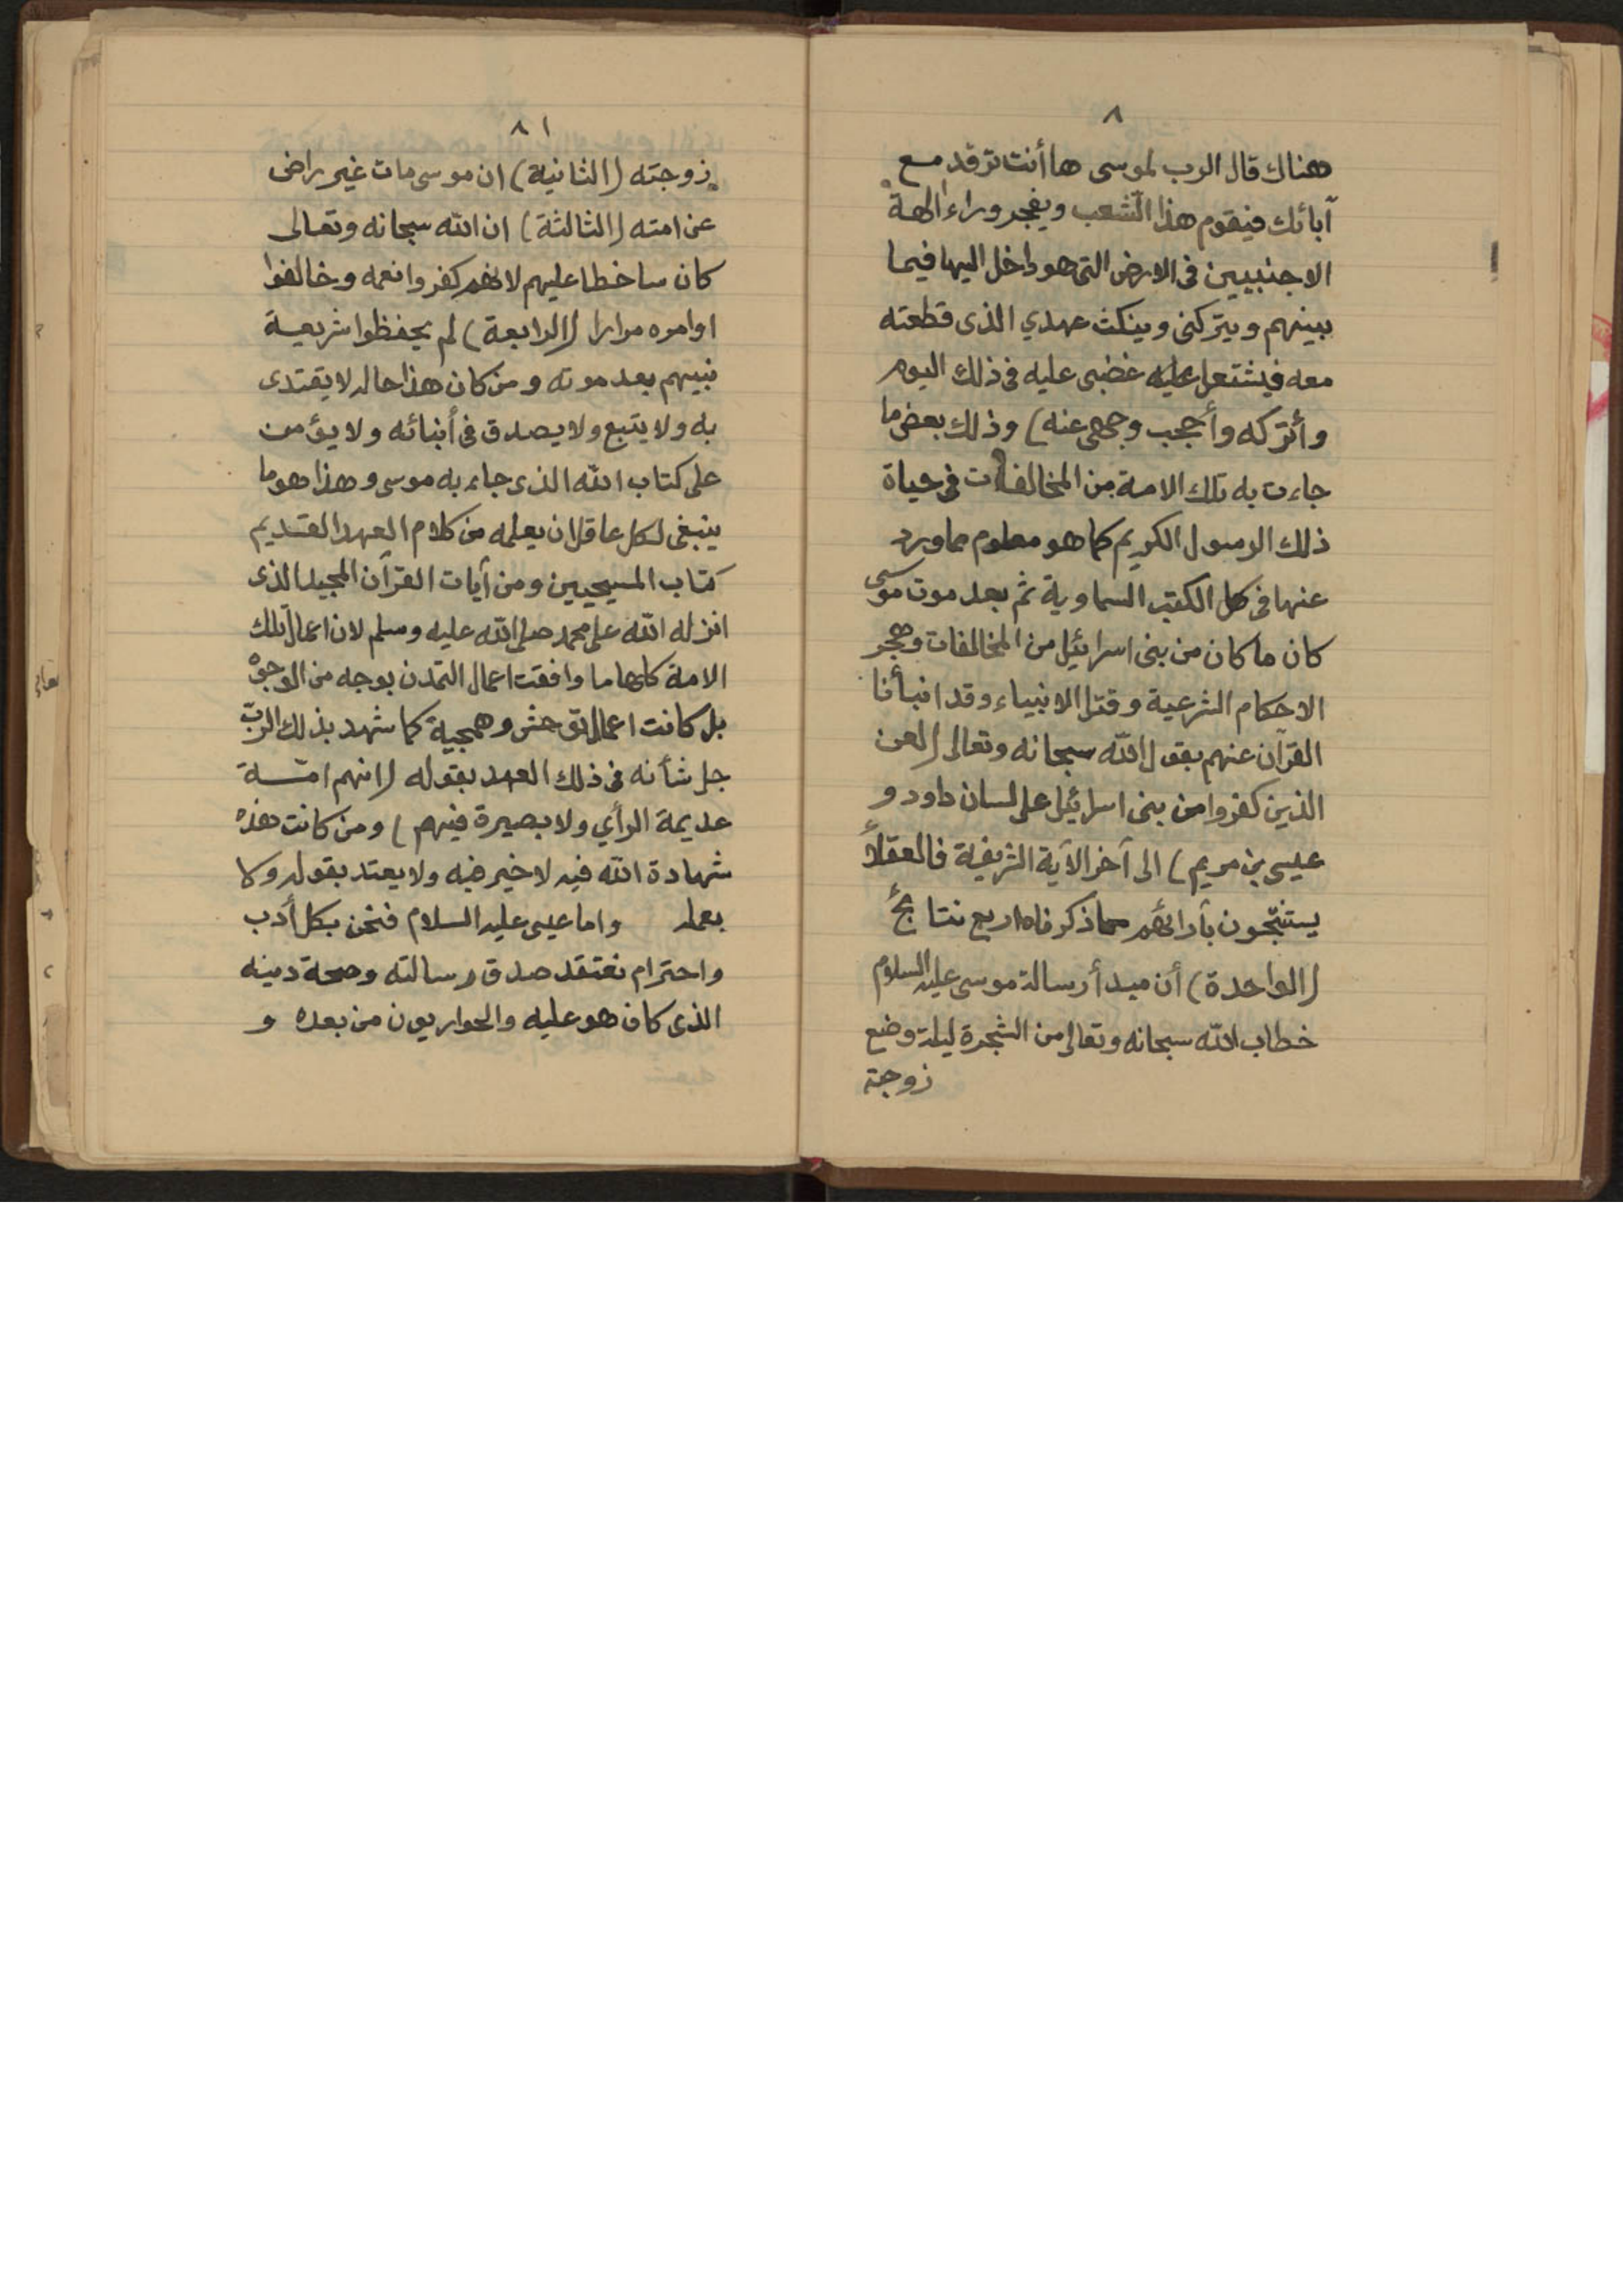 ٨
هناك قال الرب لموسى ها أنت ترقد مع
آبائك فيقوم هذا الشعب ويفجر وراء الهة
الاجنبيين فى الارض التى هو داخل اليها فيما
بينهم ويتركنى وينكث عهدي الذى قطعته
معه فيشتعل عليه غضبى عليه فى ذلك اليوم
وأتركه وأحجب وجهى عنه) وذلك بعض ما
جاءت به تلك الامة من المخالفات فى حياة
ذلك الرسول الكريم كما هو معلوم مما ورد
عنها فى كل الكتب السماوية ثم بعد موت موسى
كان ما كان من بنى اسرائيل من المخالفات وهجر
الاحكام الشرعية وقتل الانبياء وقد انبأنا
القرآن عنهم بقول الله سبحانه وتعالى (لعن
الذين كفروا من بنى اسرائيل على لسان داود و
عيسى بن مريم) الى آخر الآية الشريفة فالعقلاء
يستنتجون بآرائهم مما ذكرناه اربع نتائج
(الواحدة) أن مبدأ رسالة موسى عليه السلام
خطاب الله سبحانه وتعالى من الشجرة ليلة وضع
زوجته
٨١
زوجته (الثانية) ان موسى مات غير راض
عن امته (الثالثة) ان الله سبحانه وتعالى
كان ساخطا عليهم لانهم كفروا نعمه وخالفوا
اوامره مرارا (الرابعة) لم يحفظوا شريعة
نبيهم بعد موته ومن كان هذا حاله لا يقتدى
به ولا يتبع ولا يصدق فى أنبائه ولا يؤمن
على كتاب الله الذى جاء به موسى وهذا هو ما
ينبغى لكل عاقل ان يعلمه من كلام العهد القديم
كتاب المسيحيين ومن آيات القرآن المجيد الذى
انزله الله على محمد صلى الله عليه وسلم لان اعمال تلك
الامة كلها ما وافقت اعمال التمدن بوجه من الوجوه
بل كانت اعمال توحش وهمجية كما شهد بذلك الرب
جل شأنه فى ذلك العهد بقوله (انهم امّة
عديمة الرأي ولا بصيرة فيهم) ومن كانت هذه
شهادة الله فيه لا خير فيه ولا يعتد بقوله ولا
بعمله واما عيسى عليه السلام فنحن بكل أدب
واحترام نعتقد صدق رسالته وصحة دينه
الذى كان هو عليه والحواريون من بعده و